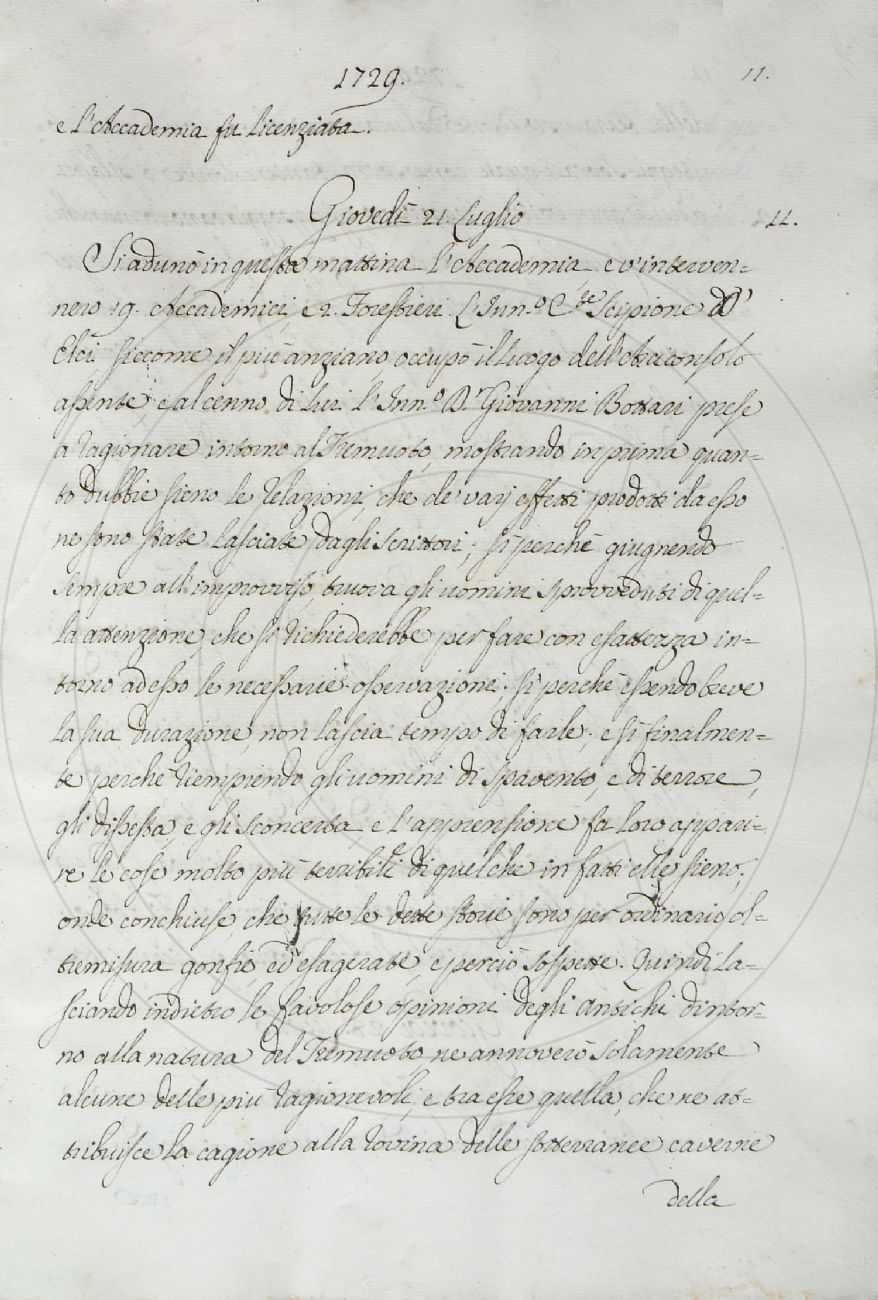 1729.
11.
e l'Accademia fu licenziata.
Giovedì 21. Luglio
11.
Si adunò in questa mattina l'Accademia, e v'interven=
nero 19. Accademici, e 2. Forestieri. L'Inn.º C.te Scipione d'
Elci siccome il più anziano occupò il luogo dell'Arciconsolo
assente, e al cenno di lui l'Inn.º D.r Giovanni Bottari prese
a ragionare intorno al Tremuoto, mostrando in prima quan=
to dubbie sieno le relazioni, che de' varj effetti prodotti da esso
ne sono state lasciate dagli scrittori; sì perchè giugnendo
sempre all'improvviso, truova gli uomini sprovveduti di quel=
la attenzione, che si richiederebbe per fare con esattezza in=
torno ad esso le necessarie osservazioni; sì perchè essendo breve
la sua durazione, non lascia tempo di farle; e sì finalmen=
te perchè riempiendo gli uomini di spavento, e di terrore,
gli dissesta, e gli sconcerta e l'apprensione fa loro appari=
re le cose molto più terribili di quel che in fatti elle sieno;
onde conchiuse, che tutte le dette storie sono per ordinario ol=
tremisura gonfie, ed esagerate, e perciò sospette. Quindi la=
sciando indietro le favolose opinioni degli antichi dintor=
no alla natura del Tremuoto, ne annoverò solamente
alcune delle più ragionevoli, e tra esse quella, che ne at=
tribuisce la cagione alla rovina delle sotterranee caverne
della